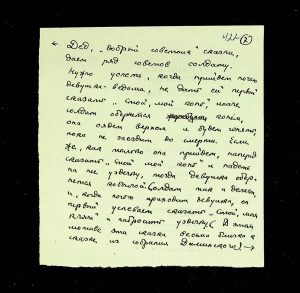 422 (2)
Дед, „добрый советник" сказки,
дает ряд советов солдату.
Нужно успеть, когда придет ночью
девушка-ведьма, не дать ей первой
сказать „стой, мой конь", иначе
солдат обернется конём,
она сядет верхом и будет гонять,
пока не заездит до смерти. Если
же, как только она придет, наперед
сказать „Стой мой конь" и надеть
на нее узечку, тогда девушка обер-
нется кобылой. Солдат так и делает,
и, когда ночью приходит девушка, он
первый успевает сказать „стой, моя
и набросить узечку. В этом
мотиве эта сказка весьма близка к
сказке из собрания →